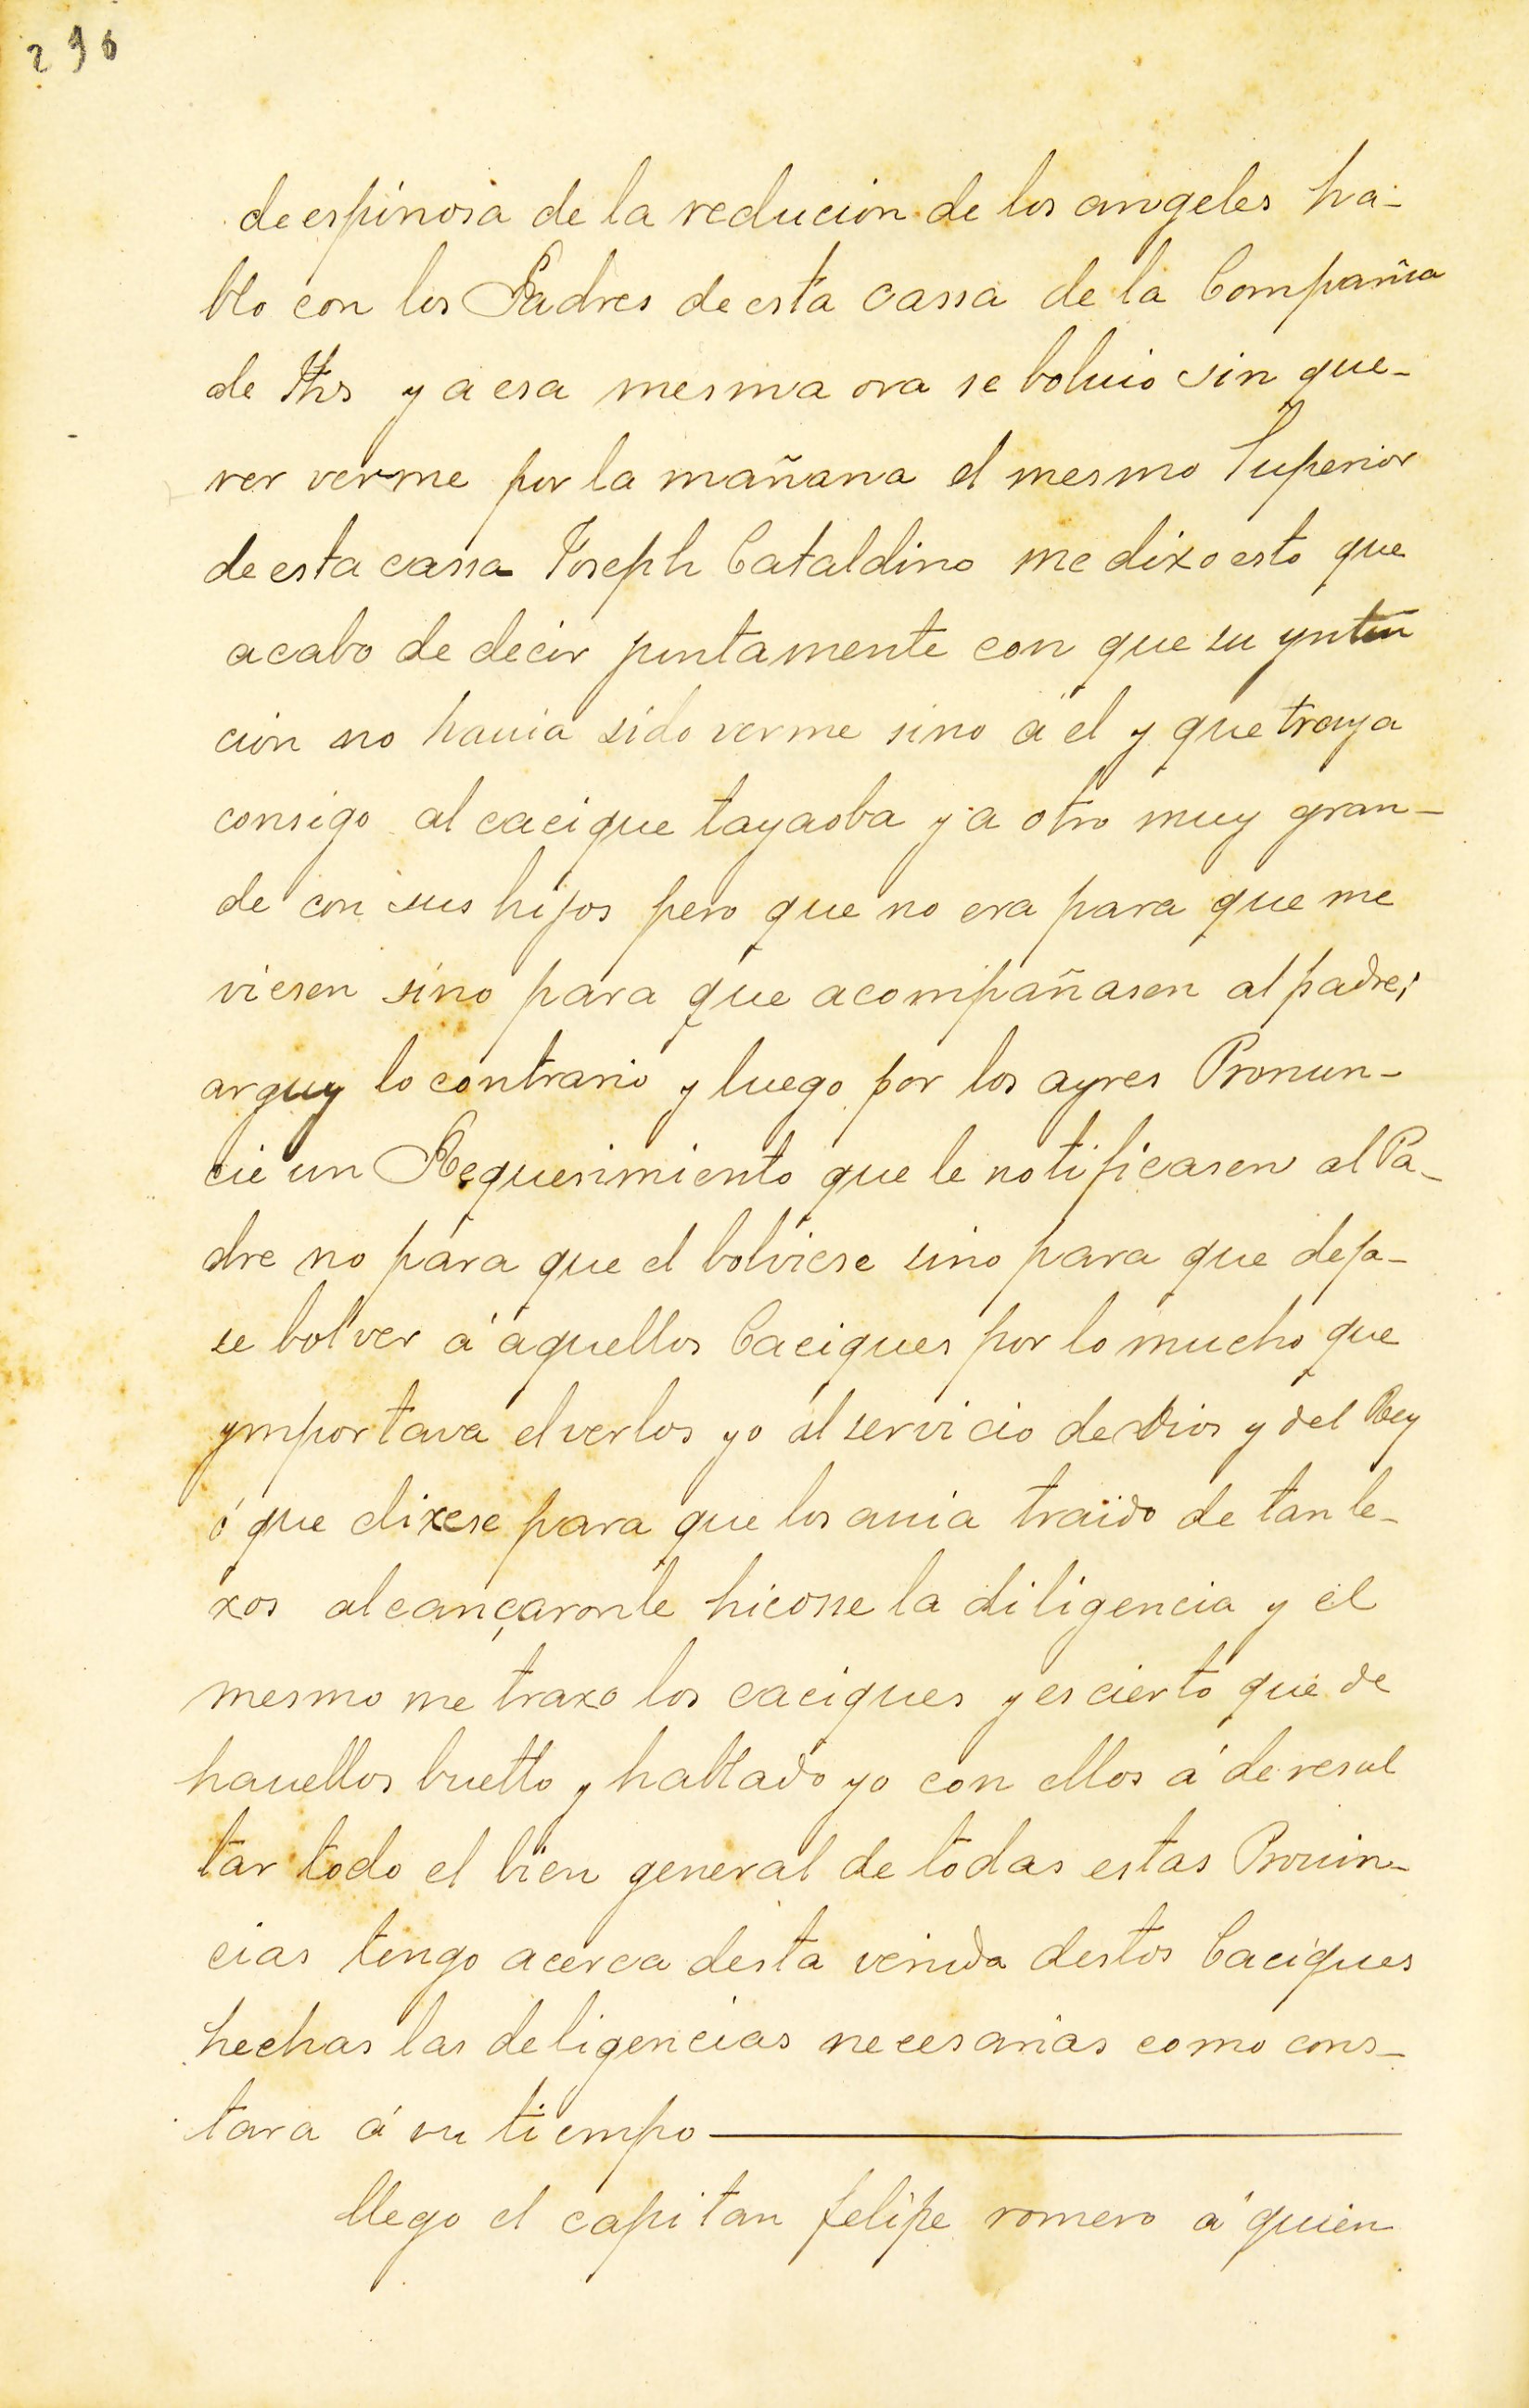 296
de espinosa de la reducion de los angeles ha-
blo con los Padres de esta cassa de la Compañia
de Jhs y a esa mesma ora se boluio sin que-
rer verme por la mañana el mesmo Superior
de esta cassa Joseph Cataldino me dixo esto que
acabo de decir juntamente con que su ynten
cion no hauia sido verme sino á el y que traya
consigo al cacique tayaoba y a otro muy gran-
de con sus hijos pero que no era para que me
viesen sino para que acompañasen al padre;
arguy lo contrario y luego por los ayres Pronun-
cie un Requerimiento que le notificasen al Pa-
dre no para que el bolviese sino para que deja-
se bolver á aquellos Caciques por lo mucho que
ymportava el verlos yo al servicio de Dios y del Rey
ó que dixese para que los auia traido de tan le-
xos alcançaronle hicosse la diligencia y el
mesmo me traxo los caciques y es cierto que de
hauellos buelto y hablado yo con ellos á de resul
tar todo el bien general de todas estas Prouin-
cias tengo acerca desta venida destos Caciques
hechas las deligencias necesarias como cons-
tara á su tiempo
llego el capitan felipe romero á quien